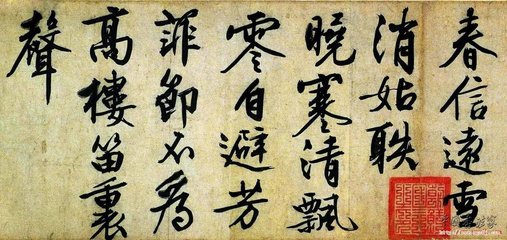 春信遠雪
消姑射
曉寒清飄
零自避芳
菲節不為
高樓笛裏
聲